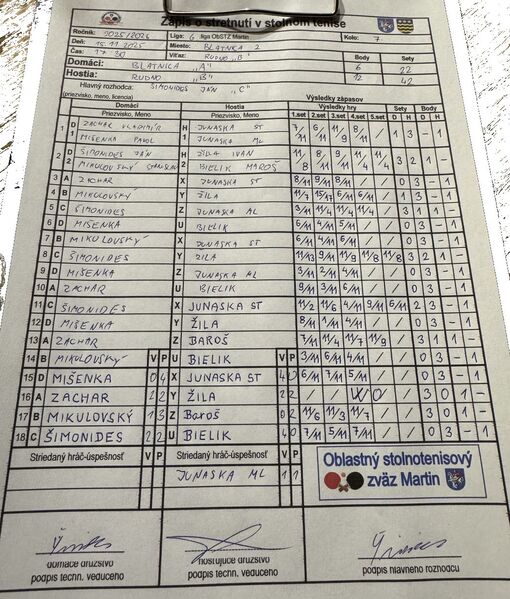 Zápis o stretnutí v stolnom tenise
Ročník: 2025/2026 Liga: 6. liga ObSTZ Martin Kolo: 7.
Deň: 15.11.2025 Miesto: BLATNICA 2
Čas: 17 30 Víťaz: RUDNO „B" Body Sety
Domáci: BLATNICA "A" 6 22
Hostia: RUDNO "B" 12 42
Hlavný rozhodca: ŠIMONIDES JÁN "C"
(priezvisko, meno, licencia)
Domáci Hostia Výsledky zápasov
Priezvisko, Meno Priezvisko, Meno Výsledky hry Sety Body
1.set 2.set 3.set 4.set 5.set D H D H
1 D1 ZACHAR VLADIMÍR H1 JUNASKA ST 7/11 6/11 11/9 8/11 / 1 3 - 1
MIŠENKA PAVOL JUNASKA ML
2 D2 ŠIMONIDES JÁN H2 ŽILA IVAN 3 2 1 -
MIKULOVSKÝ STANISLAV BIELIK MAROŠ
3 A ZACHAR X JUNASKA ST 8/11 9/11 8/11 / / 0 3 - 1
4 B MIKULOVSKÝ Y ŽILA 3 1 1 -
5 C ŠIMONIDES Z JUNASKA ML
6 D MIŠENKA U BIELIK 6/11 4/11 5/11 / / 0 3 - 1
7 B MIKULOVSKÝ X JUNASKA ST 6/11 4/11 6/11 / / 0 3 - 1
8 C ŠIMONIDES Y ZILA 11/13 11/9 11/8 3 2 1 -
9 D MIŠENKA Z JUNASKA ML 3/11 2/11 4/11 / / 0 3 - 1
10 A ZACHAR U BIELIK 9/11 3/11 6/11 / / 0 3 - 1
11 C ŠIMONIDES X JUNASKA ST 11/2 11/6 4/11 9/11 6/11 2 3 - 1
12 D MIŠENKA Y ŽILA 8/11 1/11 4/11 / / 0 3 - 1
13 A ZACHAR Z BAROŠ 7/11 11/4 11/7 11/9 / 3 1 1
14 B MIKULOVSKÝ V P U BIELIK V P 3/11 6/11 4/11 / / 0 3 - 1
15 D MIŠENKA 0 4 X JUNASKA ST 4 0 6/11 7/11 5/11 / / 0 3 - 1
16 A ZACHAR 2 2 Y ŽILA 2 2 / / / WO 3 0 1 -
17 B MIKULOVSKÝ 1 3 Z Baroš 0 2 11/6 11/3 11/7 / / 3 0 1 -
18 C ŠIMONIDES 2 2 U BIELIK 4 0 7/11 5/11 7/11 / / 0 3 - 1
Striedaný hráč-úspešnosť V P Striedaný hráč-úspešnosť V P
JUNASKA ML 1 1
Oblastný stolnotenisový
zväz Martin
domáce družstvo hosťujúce družstvo
podpis techn. vedúceho podpis techn. vedúceho podpis hlavného rozhodcu